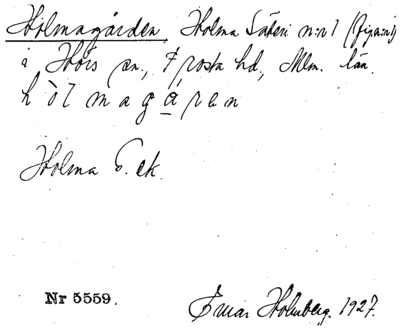 Holmagården Holma Säteri n:r 1
i Hörs sn., Frosta hd., Mlm. län.
hòlmagá̱ren
Holma S. ek.
Nr 5559.
Einar Holmberg. 1927.